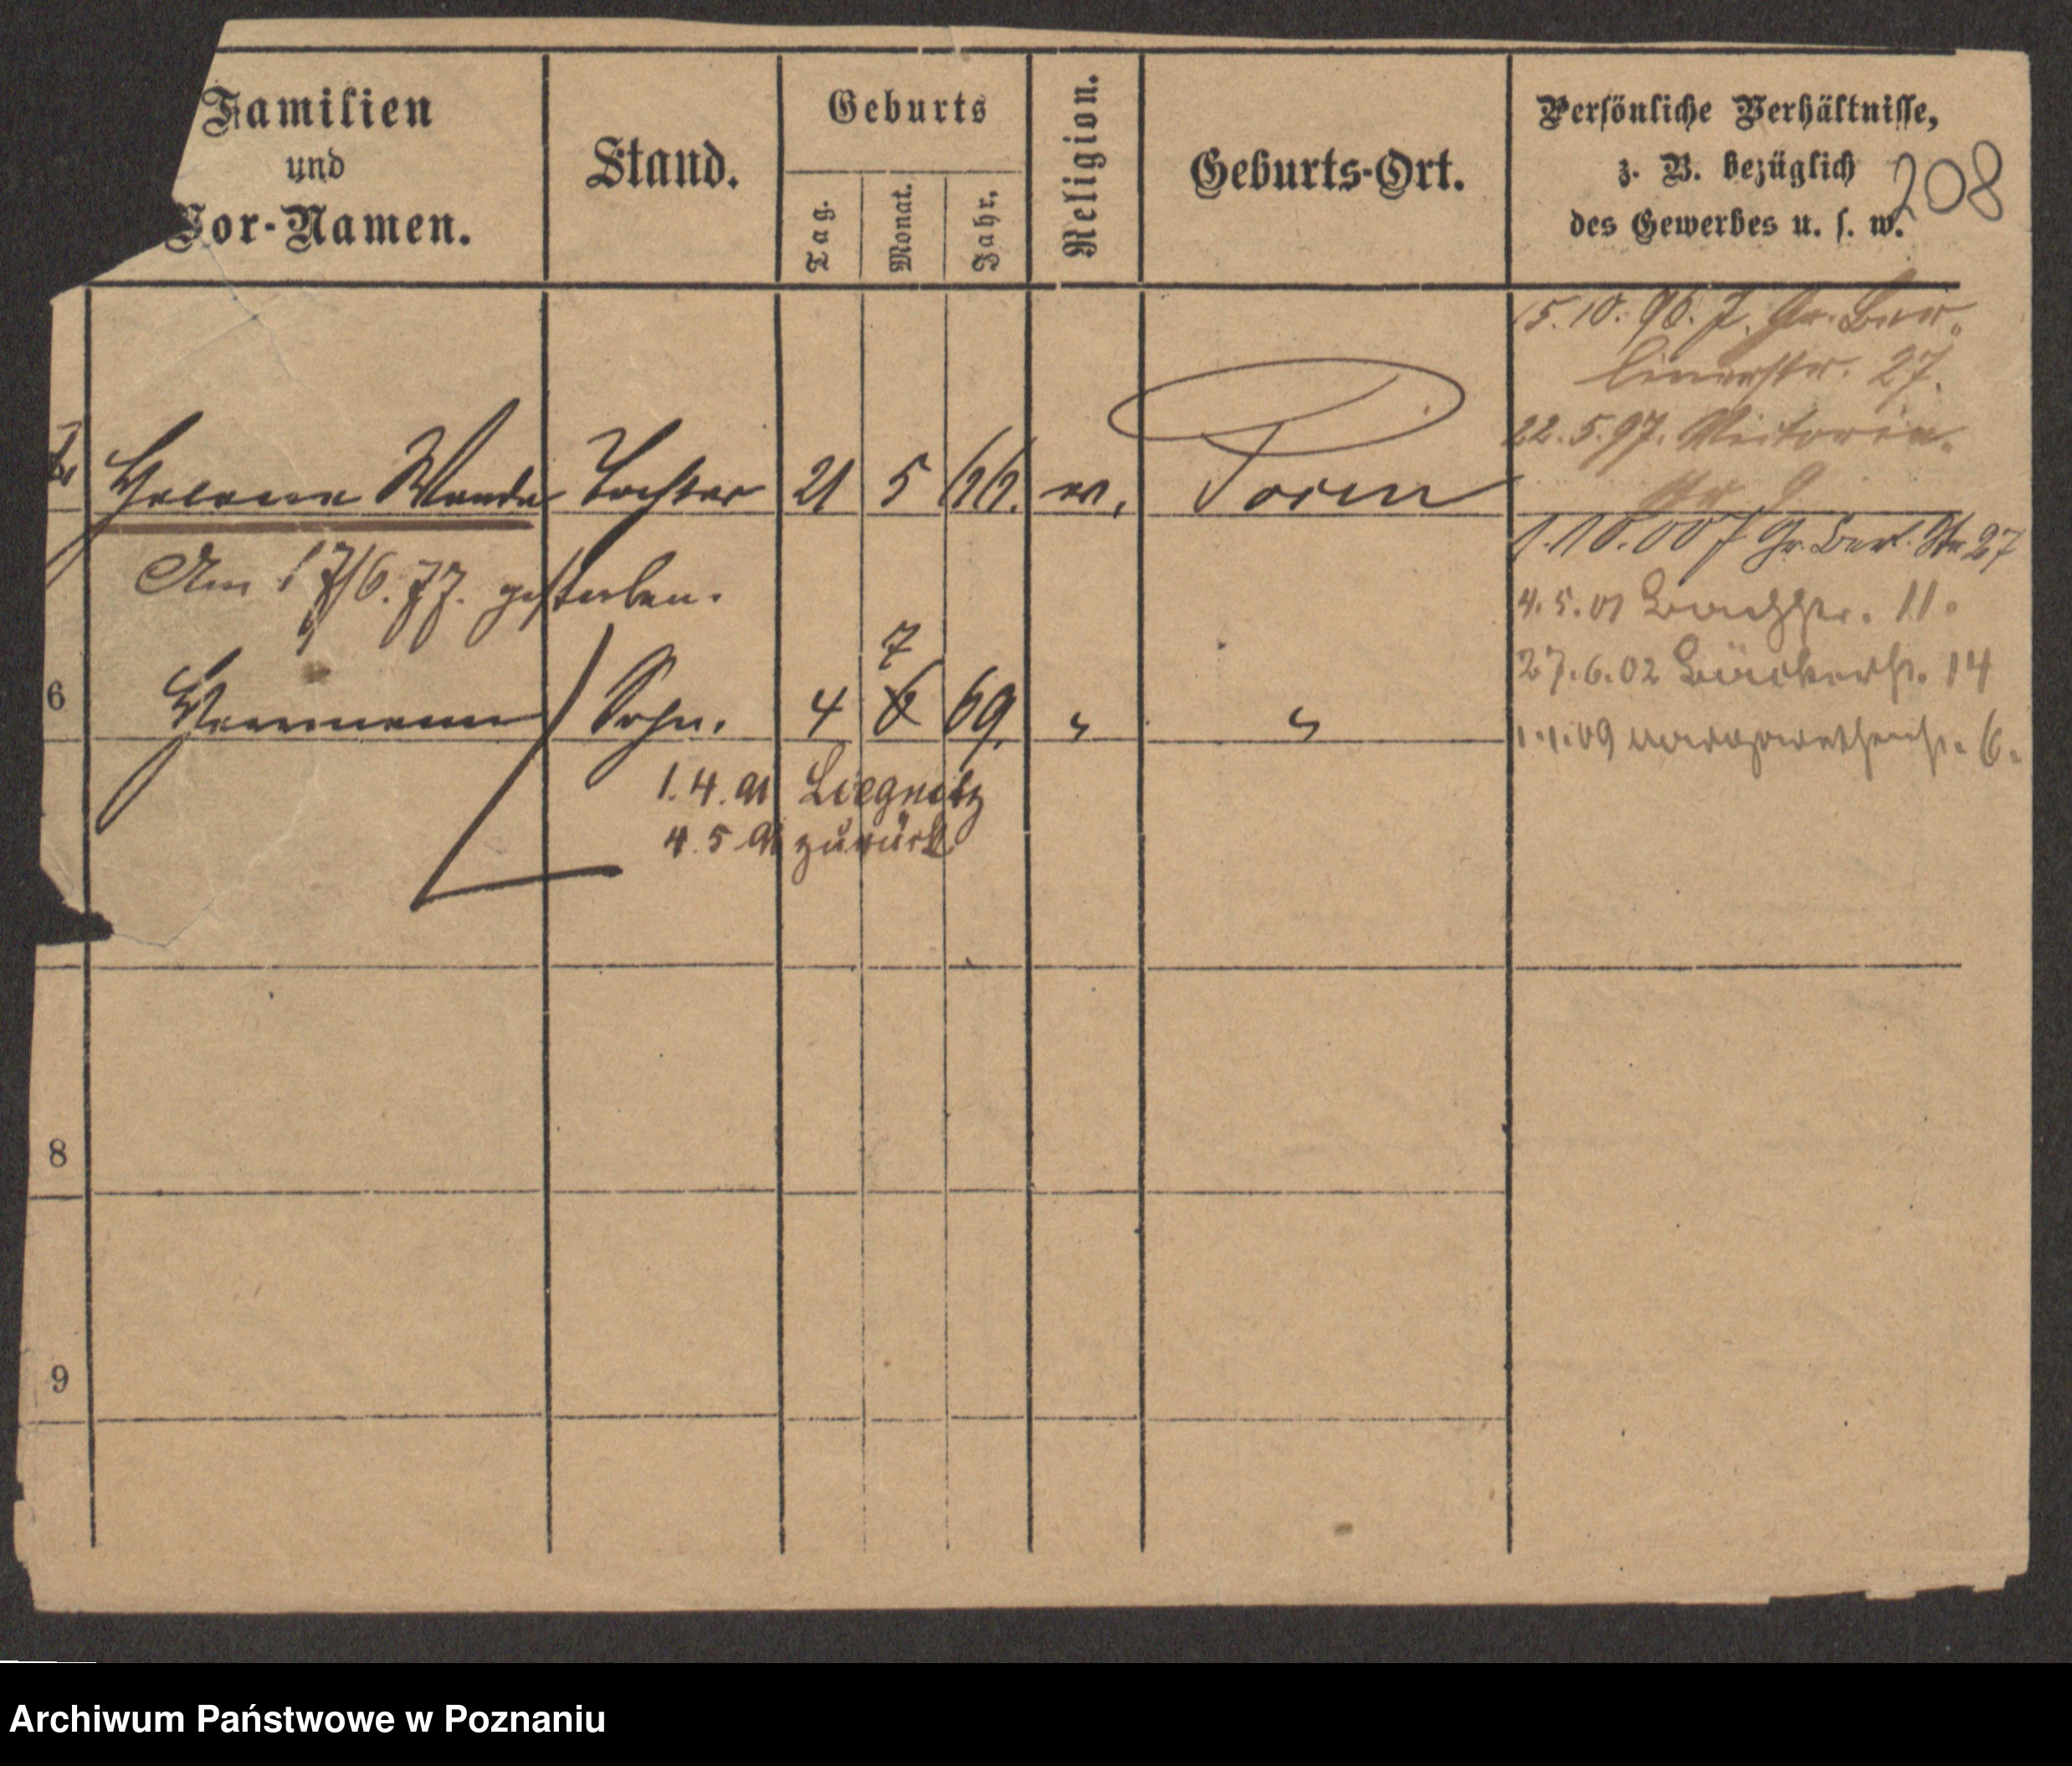 Familien
und
Vor-Namen.
Stand.
Geburts
Tag.
Monat.
Jahr.
Religion.
Geburts-Ort.
Persönliche Verhältnisse,
z. B. bezüglich
des Gewerbes u. s. w.
208
15.10.96. 7. Gr. Ber-
linerstr. 27.
22.5.97. Victoria-
str. 9
Helene Wanda Tochter 21 5 66. ev. Posen
1.10.00 7 Gr. Berl. Str 27
Am 17/6.77. gestorben.
4.5.01 Bachstr. 11.
27.6.02 Bäckerstr. 14
7
6 Herrmann Sohn. 4 6 69. " "
1.1.09 Margarethenstr. 6.
1.4.91 Liegnitz
4.5.91 zurück
8
9
Archiwum Państwowe w Poznaniu